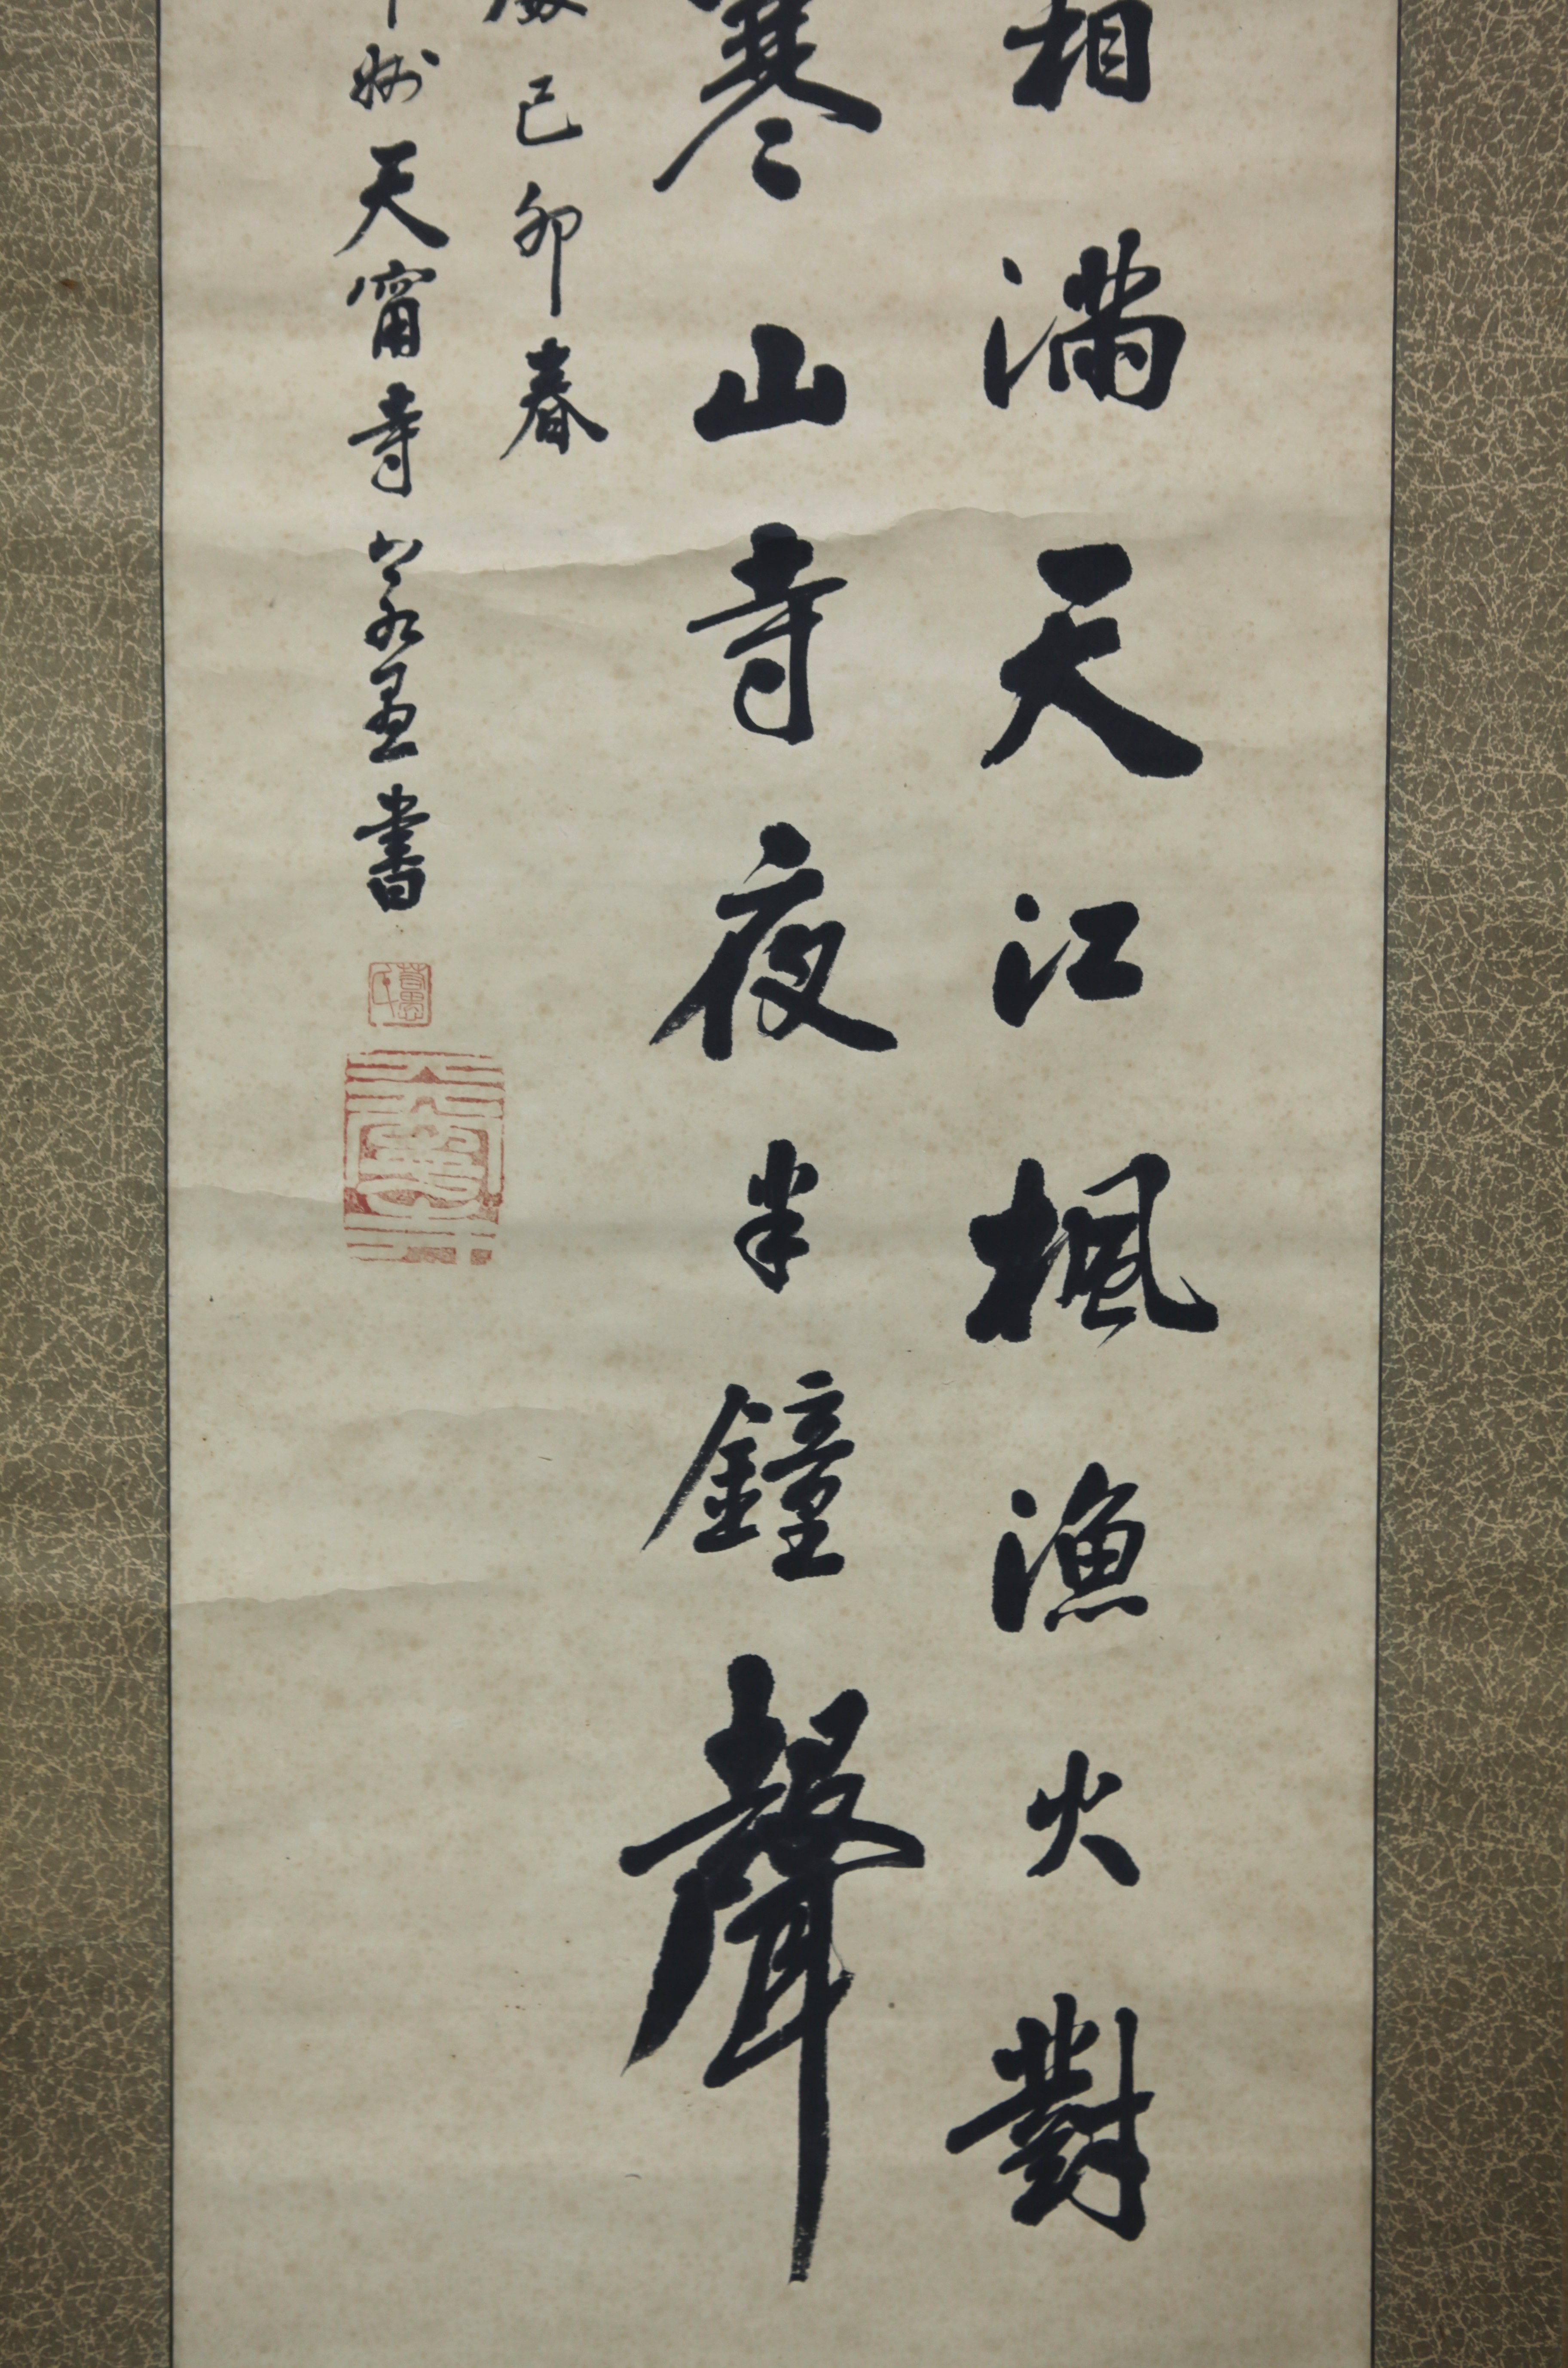 霜滿天江楓漁火對
寒山寺夜半鐘聲
歲己卯春
州天甯寺書